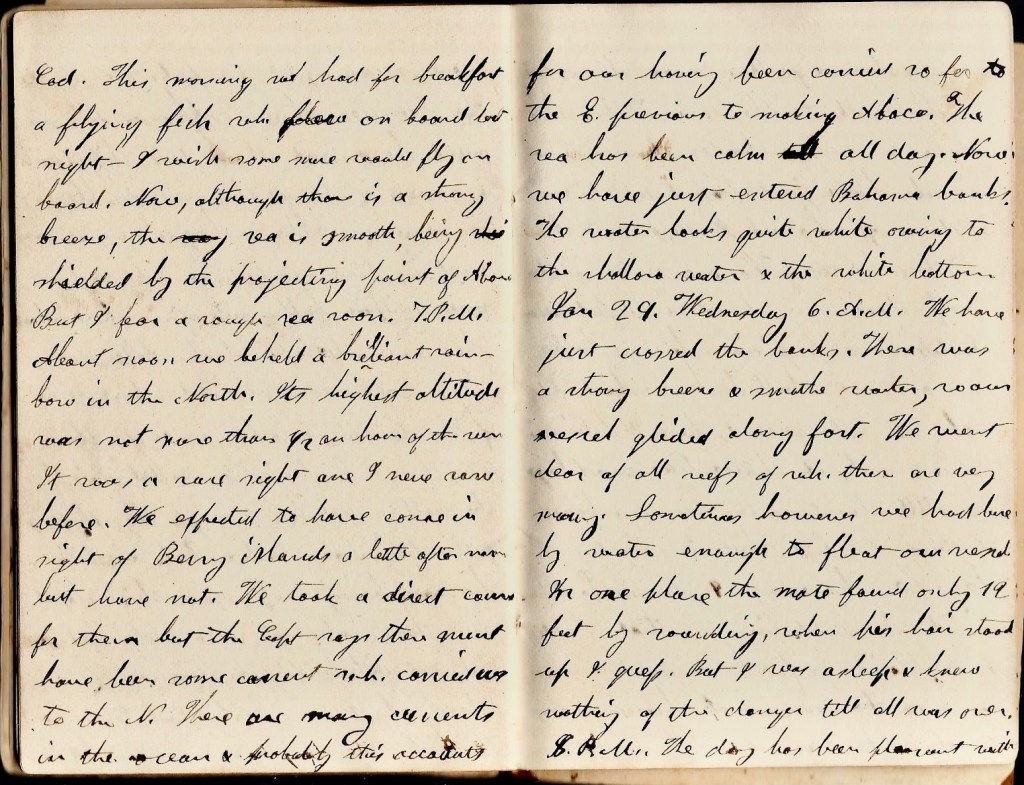 Cod. This morning we had for breakfast
a fliying fish wh. flew on board last
night — I wish some more would fly on
board. Now, although there is a strong
breeze, the sea is smooth, being
shielded by the projecting point of Abaco
But I fear a rough sea soon. 7. P.M.
About noon we beheld a brilliant rain-
bow in the North. Its highest altitude
was not more than 1/2 an hour of the sun
It was a rare sight one I never saw
before. We expected to have come in
sight of Berry islands a little after noon
but have not. We took a direct course
for them but the Capt says there must
have been some current wh. carried us
to the N. There are many currents
in the ocean & probably this accounts
for our having been carried so far to
the E. previous to making Abaco. The
sea has been calm all day. Now
we have just entered Bahama banks.
The water looks quite white owing to
the shallow water & the white bottom
Jan 29. Wednesday 6. A.M. We have
just crossed the banks. There was
a strong breeze & smothe water, so our
vessel glided along fast. We went
clear of all reefs of wh. there are very
many. Sometimes however we had bare
ly water enough to float our vessel
In one place the mate found only 19
feet by sounding, when his hair stood
up I guess. But I was asleep & knew
nothing of the danger till all was over.
8. P.M. The day has been pleasant with